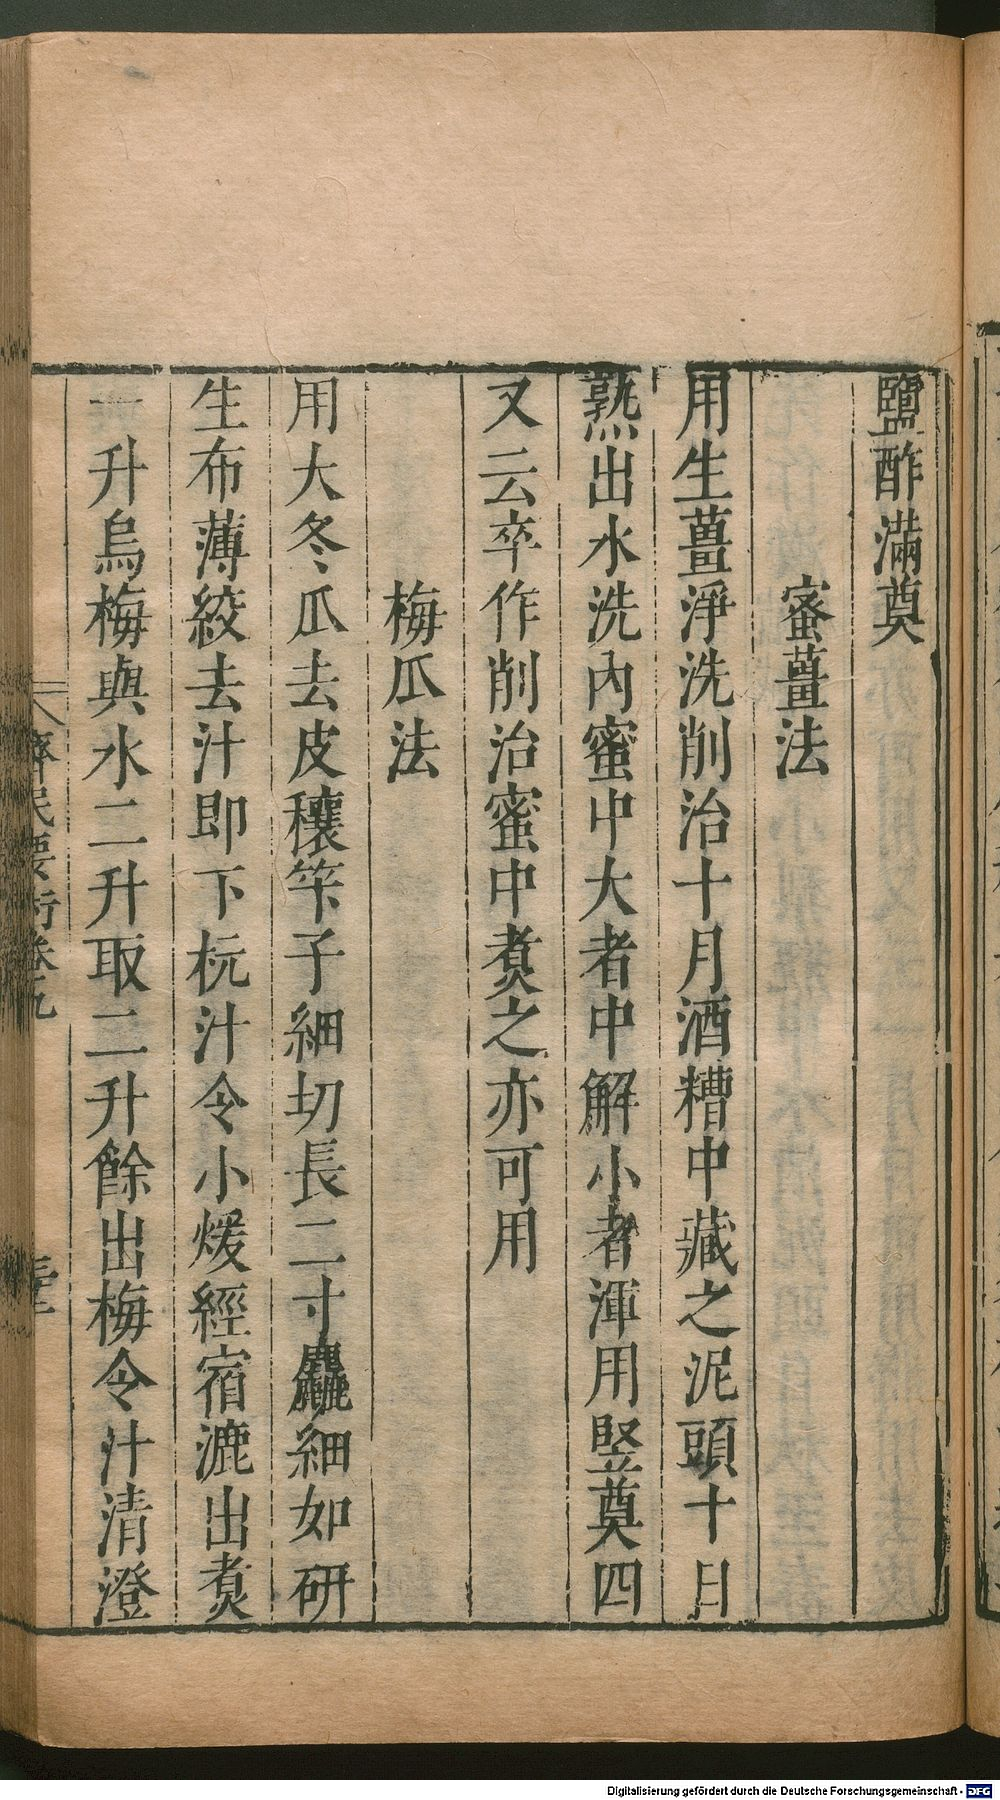 鹽酢滿奠
蜜薑法
用生薑淨洗削治十月酒糟中藏之泥頭十日
熟出水洗內蜜中大者中解小者渾用竪奠四
又云卒作削治蜜中煑之亦可用
梅瓜法
用大冬瓜去皮穰筞子細切長二寸麤細如研
生布薄絞去汁即下杬汁令小煖經宿漉出煑
一升烏梅與水二升取二升餘出梅令汁清澄
齊民要術卷九
Digitalisierung gefördert durch die Deutsche Forschungsgemeinschaft - DFG